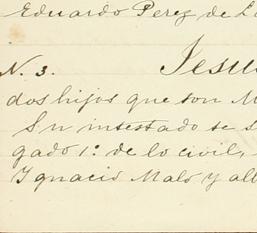 Eduardo Perez de L
N. 3. Jesu
dos hijos que son M
Su intestado se s
gado 1º de lo civil,
Ignacio Malo y alb